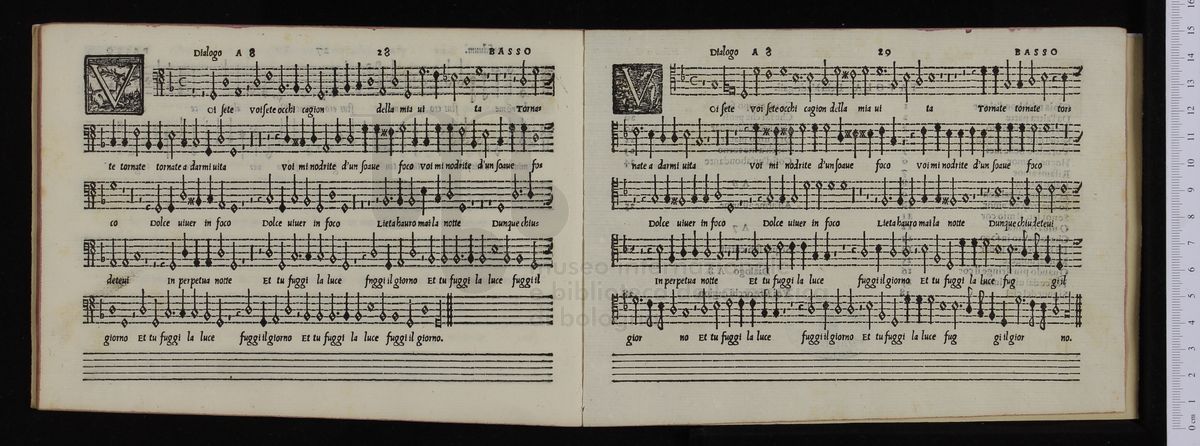 Dialogo A 8 28 BASSO
VOi sete voi sete occhi cagion della mia ui ta Torna
te tornate tornate a darmi uita voi mi nodrite d'un soaue foco voi mi nodrite d'un soaue fo
co Dolce uiuer in foco Dolce uiuer in foco Lieta hauro mai la notte Dunque chiu
deteui In perpetua notte Et tu fuggi la luce fuggi il giorno Et tu fuggi la luce fuggi il
giorno Et tu fuggi la luce fuggi il giorno Et tu fuggi la luce fuggi il giorno.
Dialogo A 8 29 BASSO
VOi sete voi sete occhi cagion della mia ui ta Tornate tornate tor
nate a darmi uita voi mi nodrite d'un soaue foco voi mi nodrite d'un soaue foco
Dolce uiuer in foco Dolce uiuer in foco Lieta hauro mai la notte Dunque chiudeteui
In perpetua notte Et tu fuggi la luce fuggi il giorno Et tu fuggi la luce fug gi il
gior no Et tu fuggi la luce fuggi il giorno Et tu fuggi la luce fug gi il gior no.
museo internazionale
e biblioteca della musica
di bologna